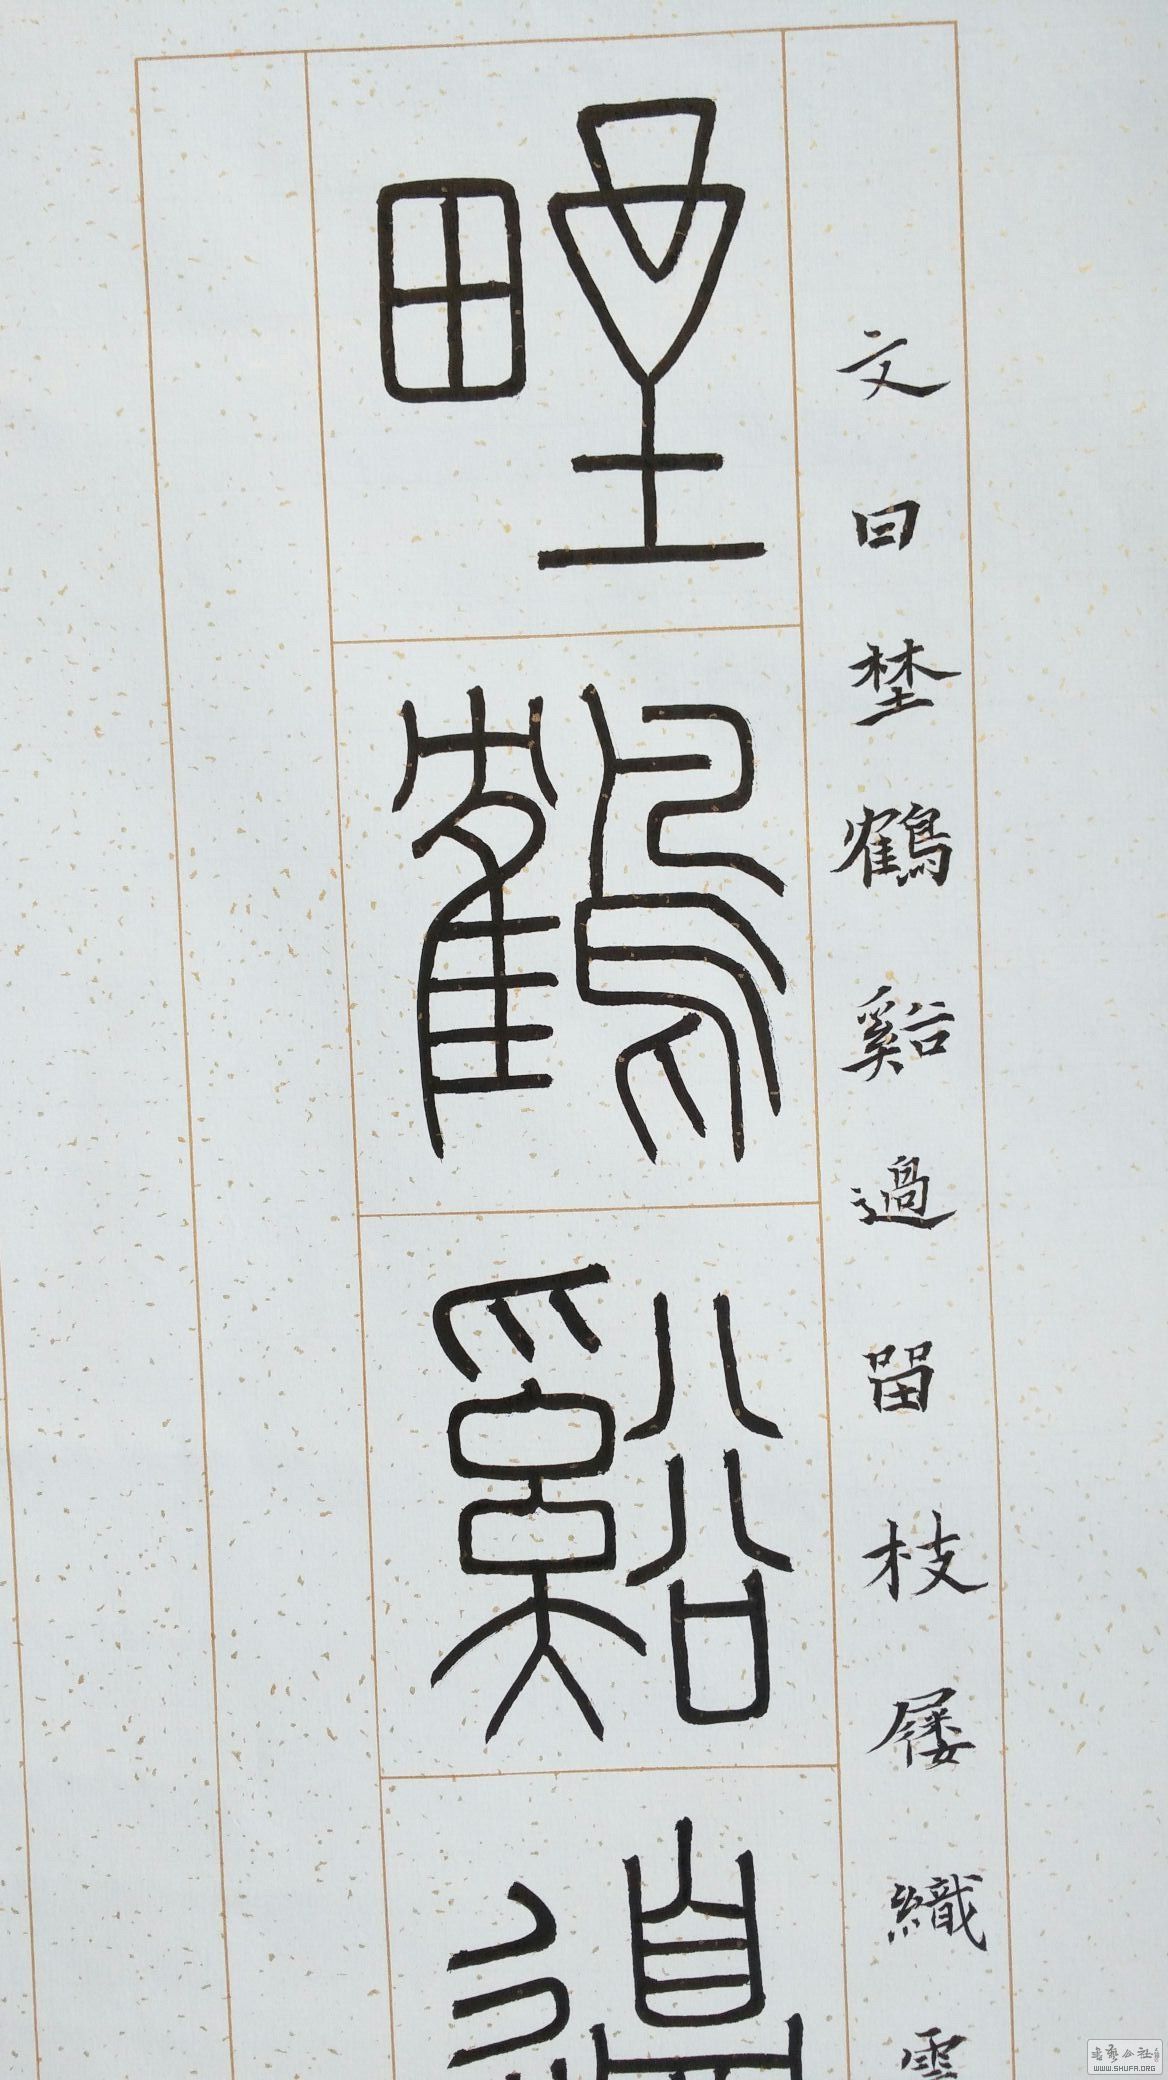 文曰埜鶴谿過㽞枝屨織
野鶴谿
书艺公社
WWW.SHUFA.ORG